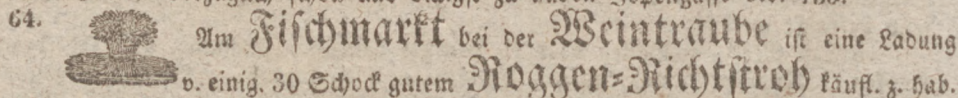 64.
Am Fischmarkt bei der Weintraube ist eine Ladung
v. einig. 30 Schock gutem Roggen-Richtstroh käufl. z. hab.